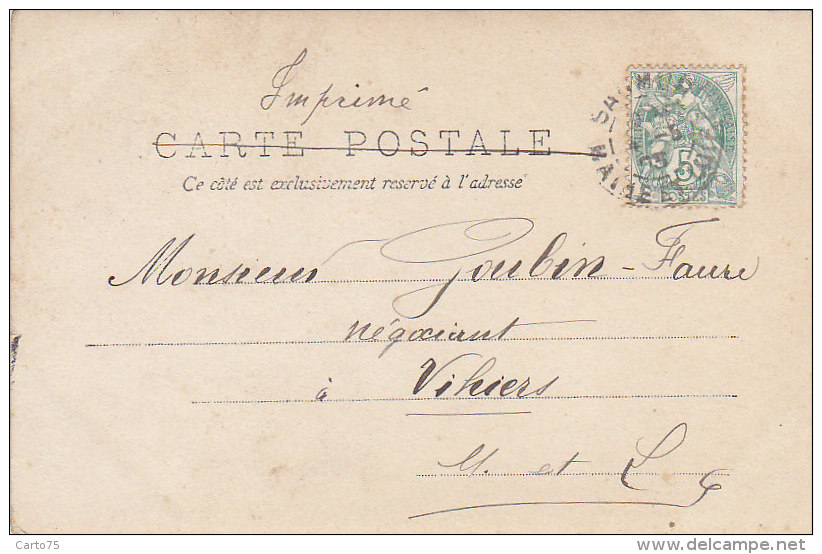 Imprimé
CARTE POSTALE
Ce côté est exclusivement reservé à l'adresse
Monsieur Goubin-Faure
négociant
à Vihiers
M. et L
5
POSTES
MAINE
Carto75
delcampe.net